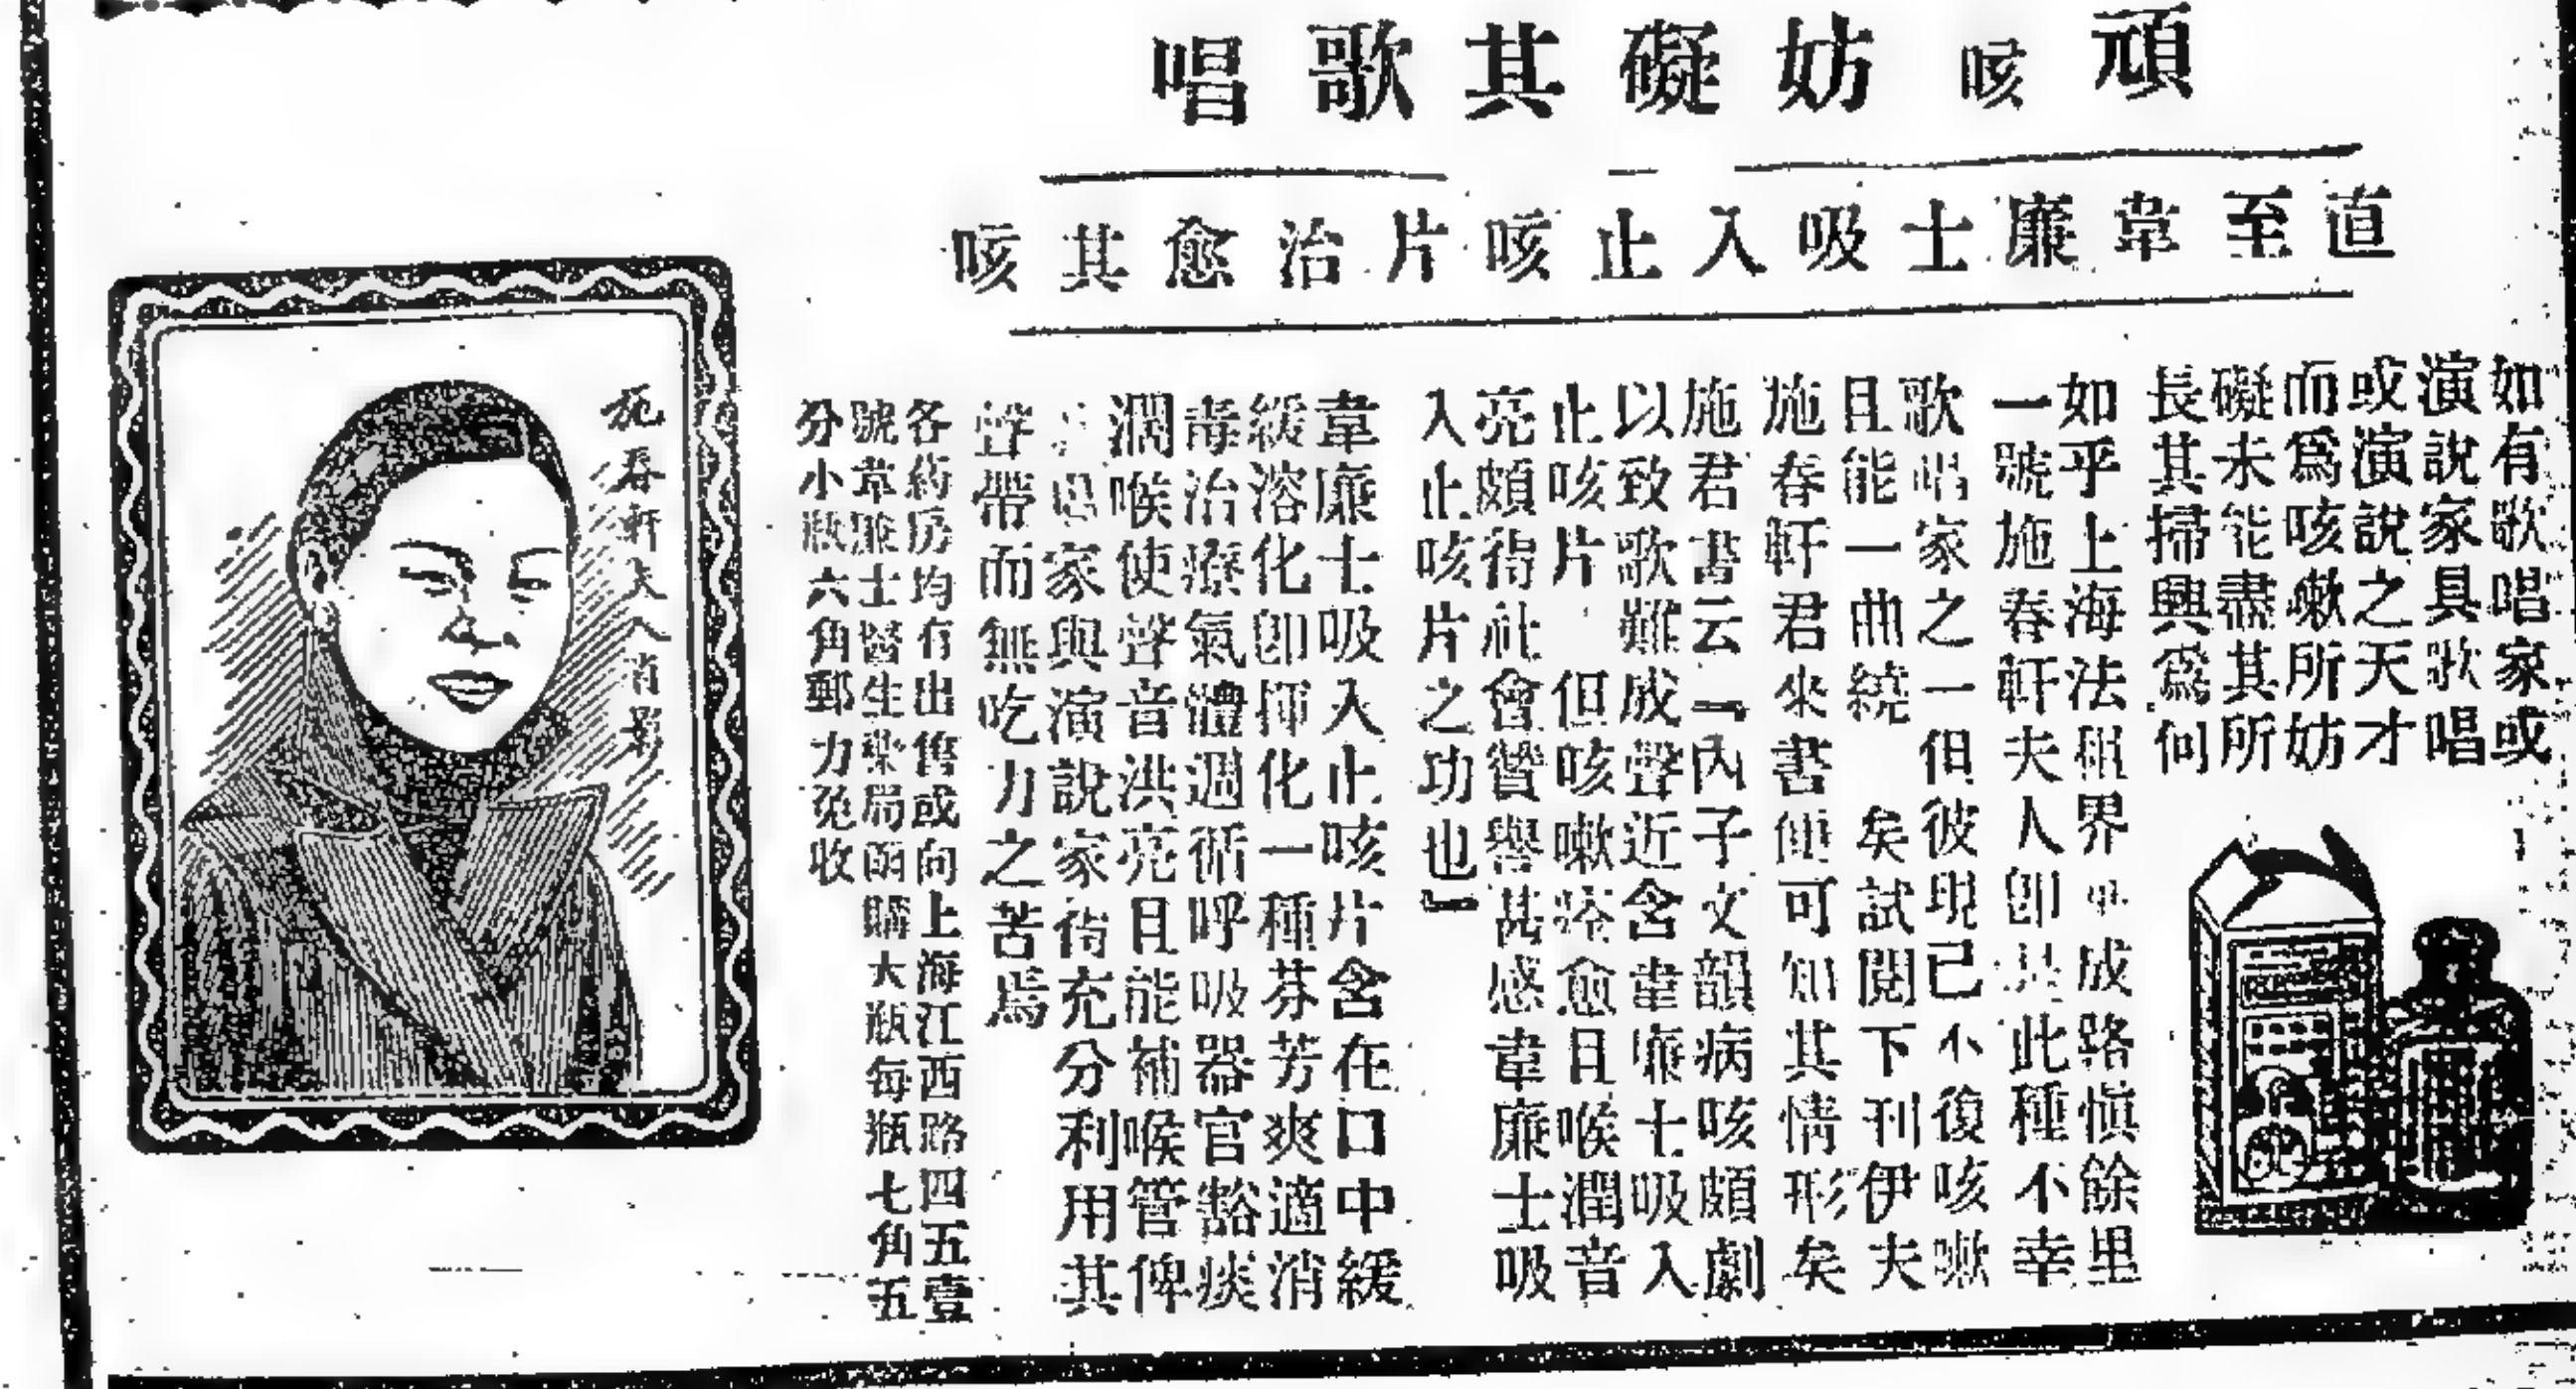 頑咳妨礙其歌唱
直至韋廉士吸入止咳片治愈其咳
如有歌唱家或
演說家具歌唱
或演說之天才
而爲咳嗽所妨
礙未能盡其所
長其掃興爲何
如乎上海法租界成路愼餘里
一號施春軒夫人卽此種不幸
歌唱家之一但彼現已不復咳嗽
且能一曲繞矣試閱下刊伊夫
施春軒君來書便可知其情形矣
施君書云『內子文韻病咳頗劇
以致歌難成聲近含韋廉士吸入
止咳片但咳嗽痊愈且喉潤音
亮頗得社會贊譽甚感韋廉士吸
入止咳片之功也』
韋廉士吸入止咳片含在口中緩
緩溶化卽揮化一種芬芳爽適消
毒治療氣體週循呼吸器官豁痰
潤喉使聲音洪亮且能補喉管俾
家與演說家得充分利用其
聲帶而無吃力之苦焉
各葯房均有出售或向上海江西路四五壹
號韋廉士醫生藥局函購大瓶每瓶七角五
分小瓶六角郵力免收
施春軒夫人肖影